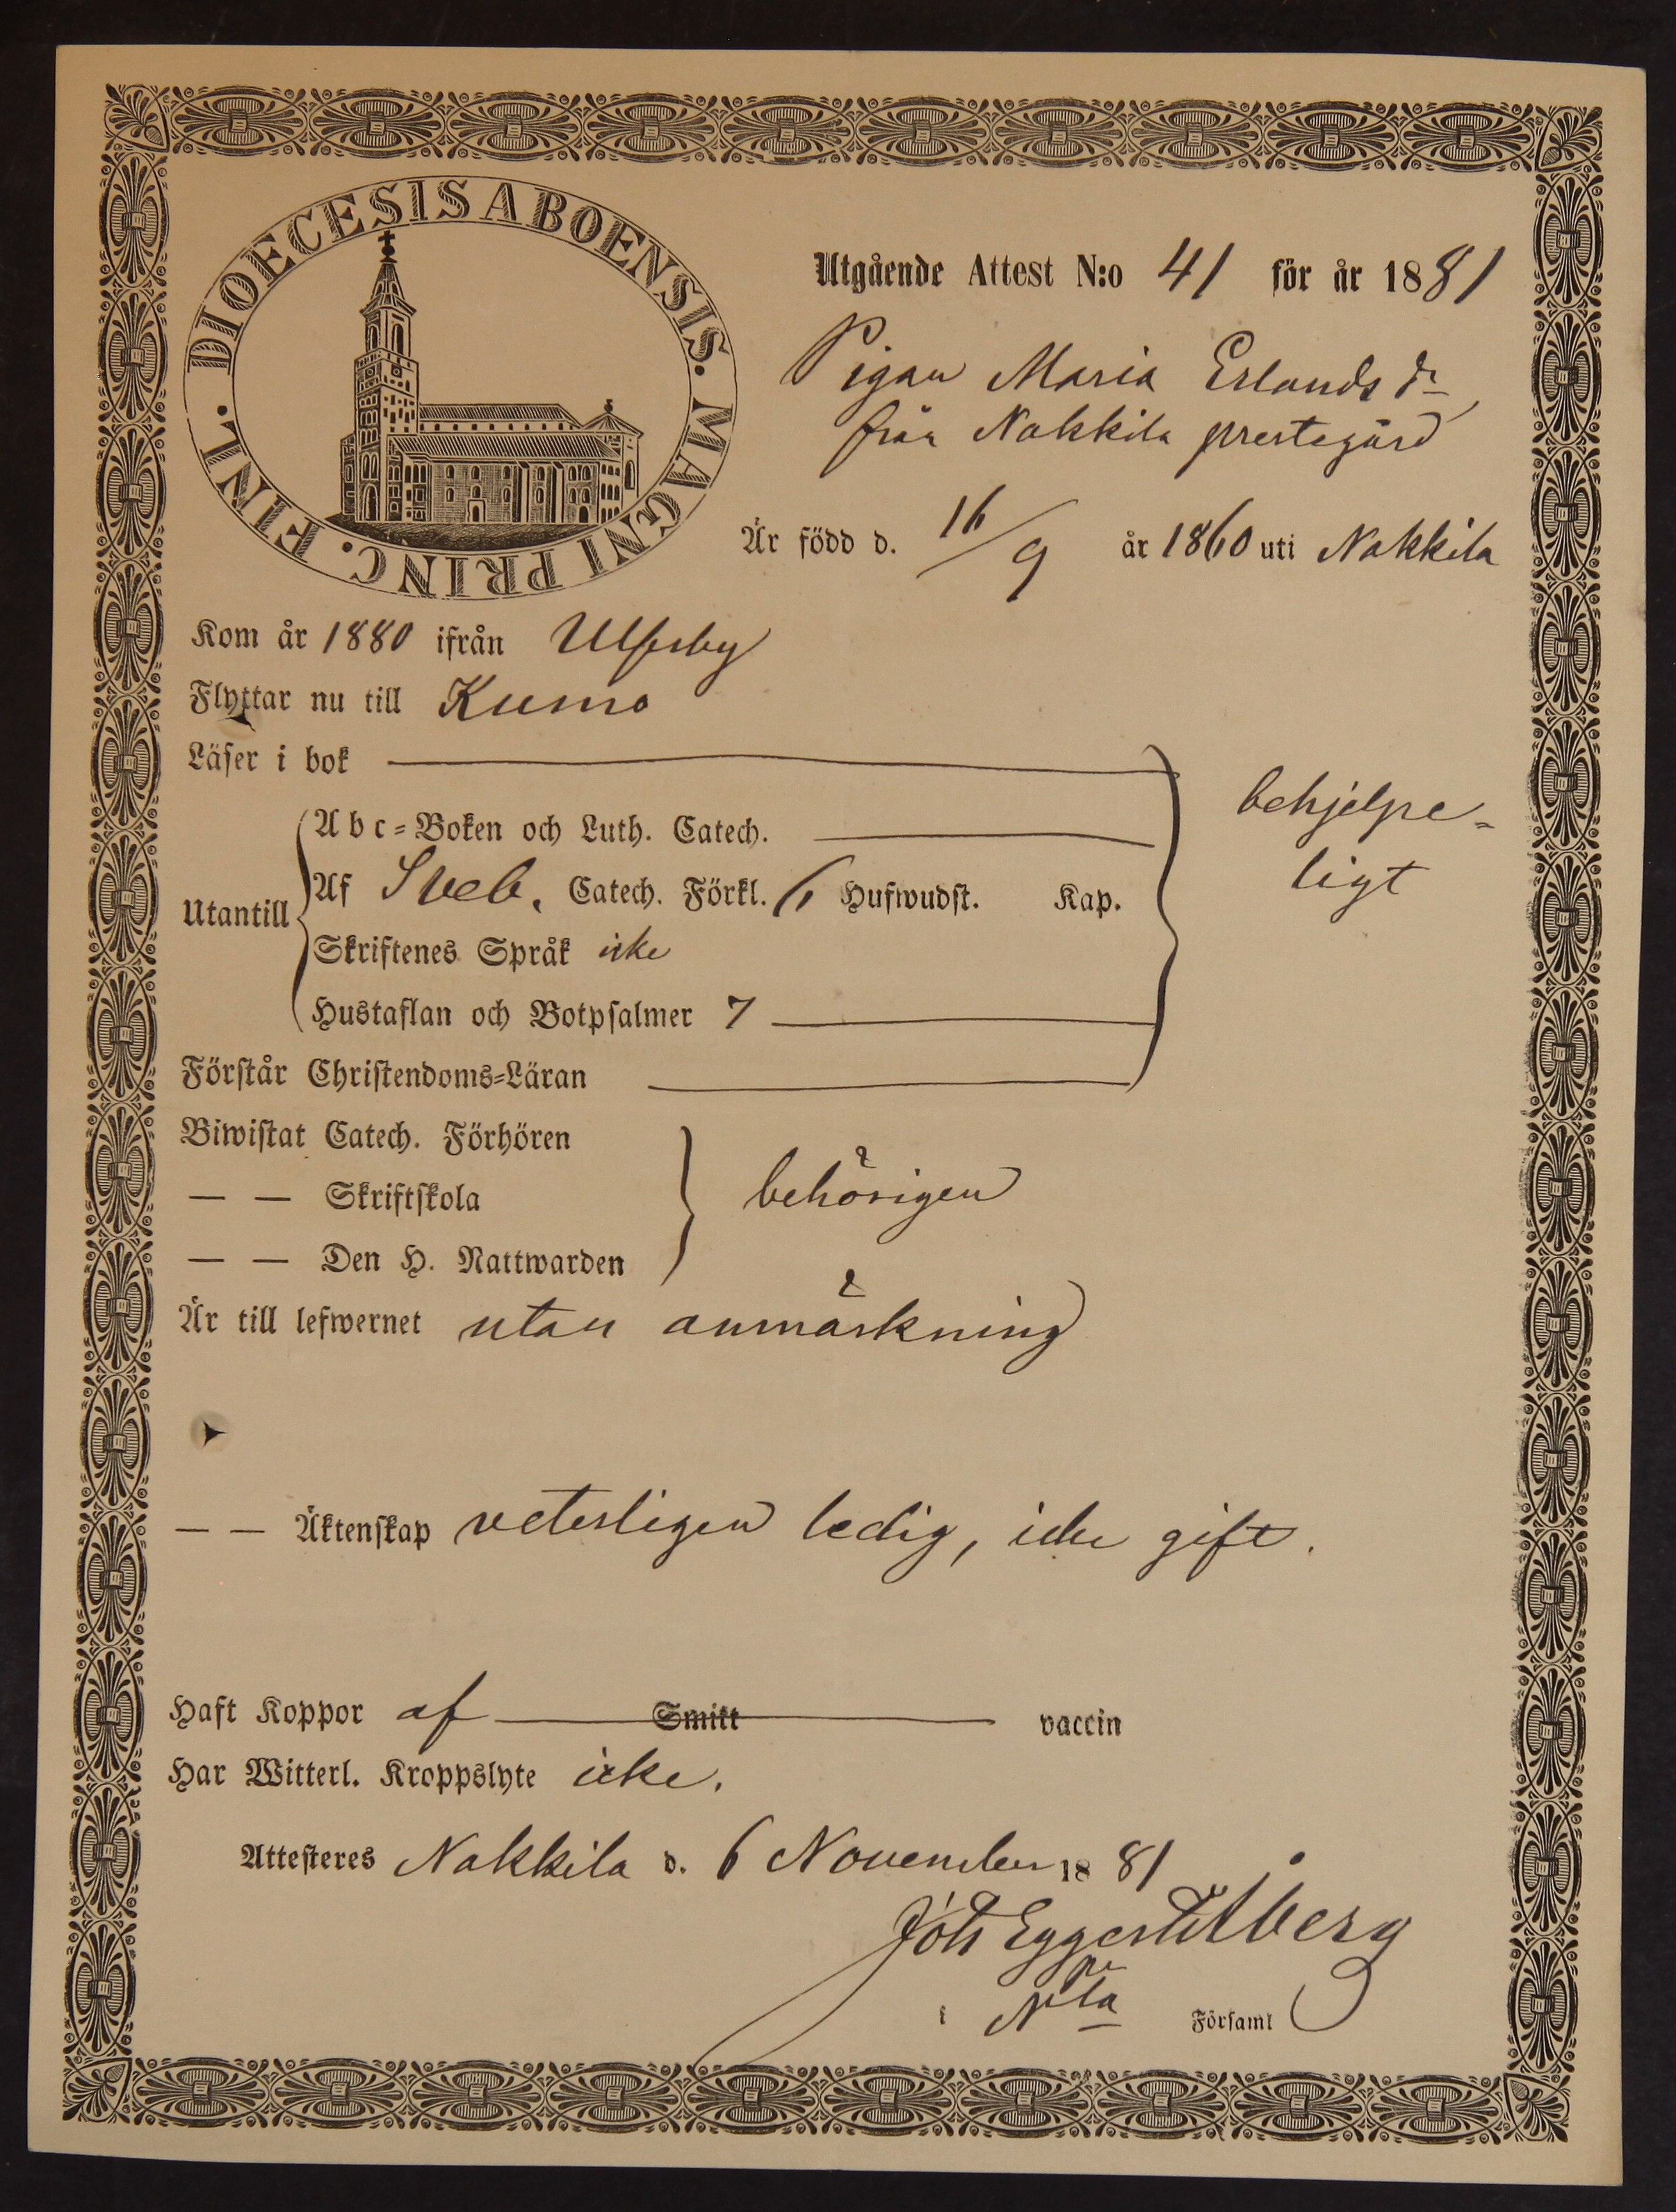 DIOECESIS ABOENSIS. MAGNI PRINC. FINL.
Utgående Attest N:o 41 för år 1881
Pigan Maria Erlands dr
från Nakkila prestegård
Är född d. 16/9 år 1860 uti Nakkila
Kom år 1880 ifrån Ulfsby
Flyttar nu till Kumo
Läser i bok
behjelpe-
ligt
Abc-Boken och Luth. Catech.
Utantill
Af Sveb. Catech. Förkl. 6 Hufwudst. Kap.
Skriftenes Språk icke
Hustaflan och Botpsalmer 7
Förstår Christendoms-Läran
Biwistat Catech. Förhören
— — Skriftskola
behörigen
— — Den H. Nattwarden
Är till lefwernet utan anmärkning
— — Äktenskap veterligen ledig, icke gift.
Haft Koppor af Smitt vaccin
Har Witterl. Kroppslyte icke.
Attesteres Nakkila d. 6 November 1881
Joh Eggert
i Församl